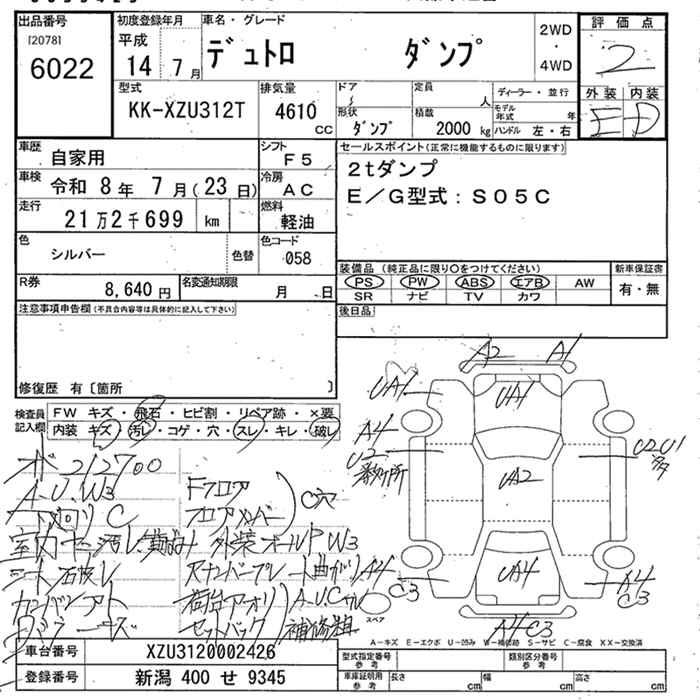 出品番号
[2078]
6022
初度登録年月
平成
14 7月
車名・グレード
デュトロ ダンプ
2WD
・
4WD
評価点
2
外装 内装
E D
型式
KK-XZU312T
排気量
4610
cc
ドア
形状
ダンプ
定員
人
積載
2000 kg
ディーラー・並行
モデル年式 年
ハンドル 左・右
車歴
自家用
シフト
F5
車検
令和 8年 7月(23日)
冷房
AC
走行
21万2千699 km
燃料
軽油
色
シルバー
色替
色コード
058
R券
8,640円
名変通知期限
月 日
セールスポイント(正常に機能するものに限ります)
2tダンプ
E/G型式:S05C
装備品(純正品に限り○をつけてください)
PS PW ABS エアB AW
SR ナビ TV カワ
新車保証書
有・無
後日品
注意事項申告欄(不具合内容等は具体的に記入して下さい)
修復歴 有〔箇所 〕
検査員
記入欄
FW キズ・飛石・ヒビ割・リペア跡・×要
内装 キズ・汚レ・コゲ・穴・スレ・キレ・破レ
212700
A-U.W3
下回りC
Fフロア
フロアメンバー
C穴
外装オールP W3
Rナンバープレート曲がり
荷台アオリ
セットバック
A.U.C
補修粗
A2 A1
UA1
UA1
A4
U2
U2U1
UA2
A4
C3
UA4
A4
C3
A4C3
スペア
A−キズ E−エクボ U−凹み W−補修跡 S−サビ C−腐食 XX−交換済
車台番号
XZU3120002426
登録番号
新潟 400 せ 9345
型式指定番号
参考
類別区分番号
参考
車庫証明用
参考
長さ cm
幅 cm
高さ cm